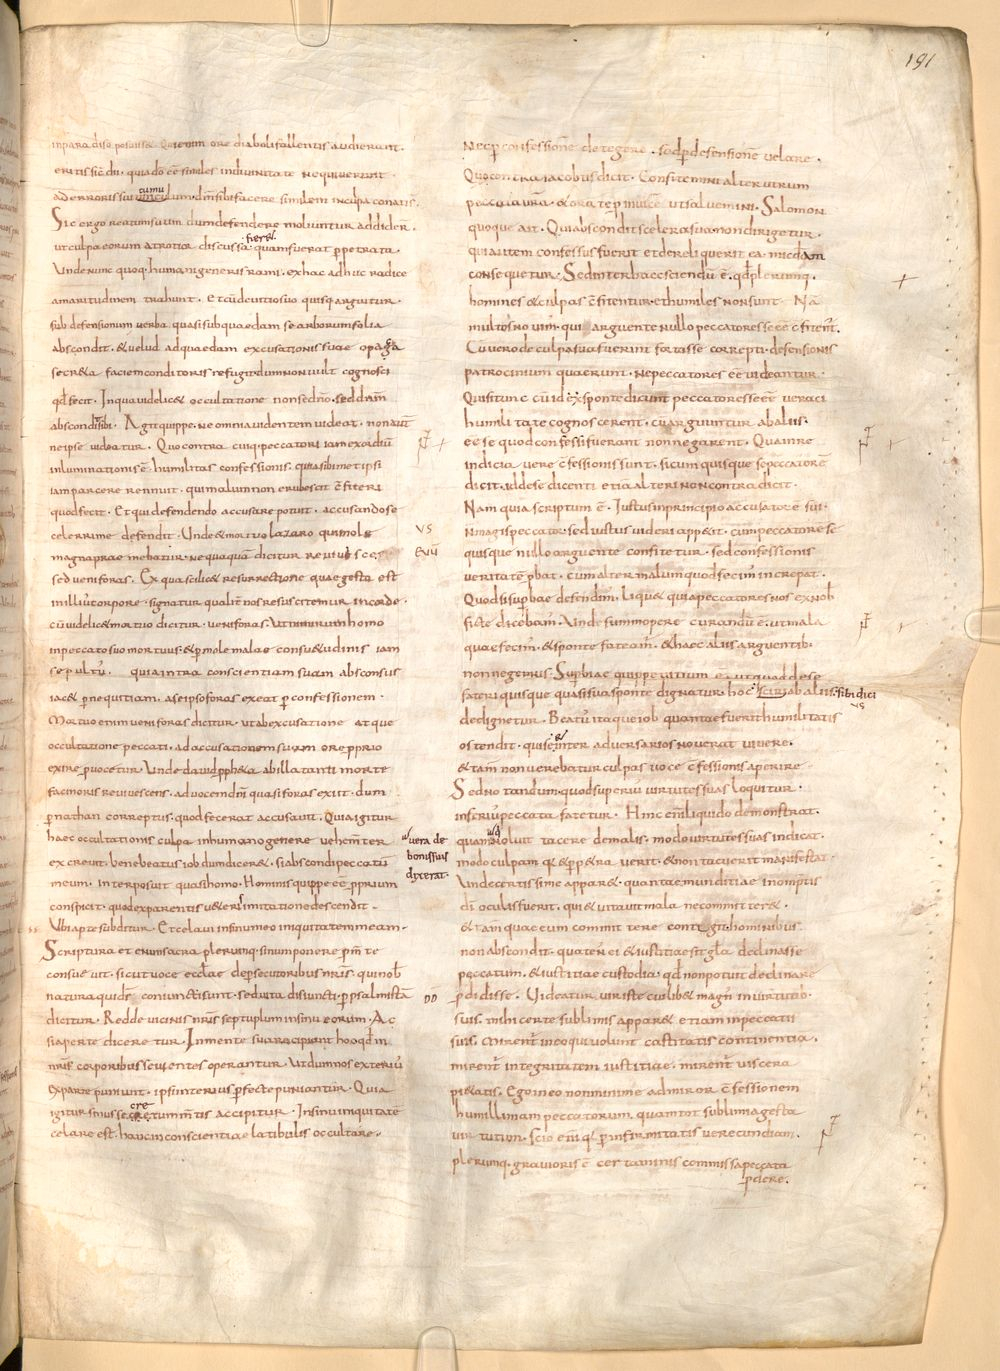 191
in paradiso positis & Qui enim ore diaboli fallentis audierunt.
eritis sic dii. quia do ēe similes in divinitate nequiverunt
ad erroris sui cumulum. dm̄ sibi facere similem in culpa conati s̄.
Sic ergo reatum suum dum defendere moliuntur addider̄.
ut culpa eorum atrotior discussa fier&. quam fuerat ppetrata.
Unde nunc quoq; humani generis rami. ex hac adhuc radice
amaritudinem trahunt. Et cū de vitio suo quisq; arguitur.
sub defensionum verba. quasi sub quaedam se arborum folia
abscondit. & velud ad quaedam excusationis suae opaca
secr&a faciem conditoris refugit. dum non vult cognosci
qđ fecit. In qua videlic& occultatione non se dn̄o. sed dn̄m
abscondit sibi. Agit quippe. ne omnia videntem videat. non aut̄
ne ipse videatur. Quo contra cuiq; peccatori iam exordiū
inluminationis ē. humilitas confessionis. quia sibimet ipsi
iam parcere rennuit. qui malum non erubescit c̄fiteri
quod fecit. Et qui defendendo accusare potuit. accusando se
celerrime defendit. Unde & mortuo lazaro qui mole
magna praemebatur. nequaquā dicitur revivesce.
sed veni foras. Ex qua scilic& resurrectione quae gesta est
in illius corpore. signatur qualit̄ nos resuscitemur in corde.
cū videlic& mortuo dicitur. veni foras. Ut nimirum homo
in peccato suo mortuus. & p mole malae consu&udinis iam
sepultus. quia intra conscientiam suam absconsus
iac& p nequitiam. a se ipso foras exeat p confessionem.
Mortuo enim veni foras dicitur. ut ab excusatione atque
occultatione peccati. ad accusationem suam ore pprio
exire pvocetur. Unde david pph&a ab illa tanti morte
facinoris revivescens. ad vocem dn̄i quasi foras exiit. dum
p nathan correptus. quod fecerat accusavit. Quia igitur
haec occultationis culpa in humano genere vehem̄ter
excrevit. bene beatus iob dum dicer&. si abscondi peccatū
meum. interposuit quasi homo. Hominis quippe eē pprium
conspicit. quod ex parentis v&eris imitatione descendit.
Ubi apte subditur. Et celavi in sinu meo iniquitatem meam.
Scriptura etenim sacra plerumq; sinum ponere p m̄te
consuevit. sicut voce eccl̄ae de psecutoribus nr̄is. qui nob̄
natura quidē coniuncti sunt. sed vita disiuncti. p psalmistā
dicitur. Redde vicinis nr̄is septuplum in sinu eorum. Ac
si aperte diceretur. In mente sua recipiant hoc qđ in
nr̄is corporibus sevientes operantur. Ut dum nos exterius
ex parte puniunt. ipsi interius pfecte puniantur. Quia
igitur sinus secretum m̄tis accipitur. In sinu iniquitatē
celare est. hanc in conscientiae latibulis occultare.
vera de
bonis suis
dyxerat.
Nec p confessionē detegere. sed p defensionē velare.
Quo contra iacobus dicit. Confitemini alterutrum
peccata vr̄a. & orate p invicē ut salvemini. Salomon
quoque ait. Qui abscondit scelera sua non dirigetur.
qui autem confessus fuerit et dereliquerit ea. mīcdam
consequetur. Sed inter haec sciendū ē. qđ plerumq;
homines & culpas c̄fitentur. et humiles non sunt. Nā
multos novim̄. qui arguente nullo peccatores se ēe c̄fitent̄.
Cū vero de culpa sua fuerint fortasse correpti. defensionis
patrocinium quaerunt. ne peccatores ēe videantur.
Qui si tunc cū id ex sponte dicunt peccatores se ēe. veraci
humilitate cognoscerent. cū arguuntur ab aliis.
ēe se quod confessi fuerant non negarent. Qua in re
indicia vere c̄fessionis sunt. si cum quisque se peccatorē
dicit. id de se dicenti etiā alteri non contradicit.
Nam quia scriptum ē. Iustus in principio accusator ē sui.
N magis peccator. sed iustus videri app&it. cum peccatorē se
quisque nullo arguente confitetur. sed confessionis
veritatē pbat. cum alter malum quod fecim̄ increpat.
Quod si supbae defendim̄. liqu& quia peccatores nos ex nob̄
ficte dicebam̄. Unde summopere curandū ē. ut mala
quae fecim̄. & sponte fateam̄. & haec aliis arguentib;
non negemus. Supbiae quippe vitium ē. ut quod de se
fateri quisque quasi sua sponte dignatur. hoc sciri ab aliis. sibi dici
dedignetur. Beatus itaque iob quantae fuerit humilitatis
ostendit. qui se & inter adversarios noverat vivere.
& tam̄ non verebatur culpas voce c̄fessionis aperire
Sed notandum. quod superius virtutes suas loquitur.
inferius peccata fatetur. Hinc enī liquido demonstrat.
quam noluit tacere de malis. modo virtutes suas indicat.
modo culpam quā & pp&raverit. & non tacuerit manifestat.
Unde certissime appar&. quantae munditiae in omnip̄tis
dī oculis fuerit. qui & vitavit mala ne committer&.
& tam̄ quae eum committere contigit. hominibus
non abscondit. quatenus ei & iustitiae sit gl̄a declinasse
peccatum. & iustitiae custodia. qđ non potuit declinare
pdidisse. Videatur vir iste cuilib& magn̄ in virtutib;
suis. mihi certe sublimis appar& etiam in peccatis
suis. Mirent̄ in eo qui volunt castitatis continentiā.
mirent̄ integritatem iustitiae. mirent̄ viscera
pi&atis. Ego in eo non minime admiror c̄fessionem
humillimam peccatorum. quam tot sublimia gesta
virtutum. Scio enī qđ p infirmitatis verecundiam.
plerumq; gravioris ē certaminis commissa peccata
pdere.